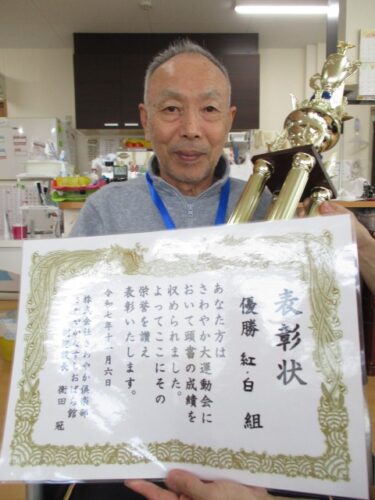 表彰状
優勝 紅・白 組
あなた方は
さわやか大運動会に
おいて頭書の成績を
収められました。
よってここにその
栄誉を讃え
表彰いたします。
令和七年十一月六日
株式会社さわやか倶楽部